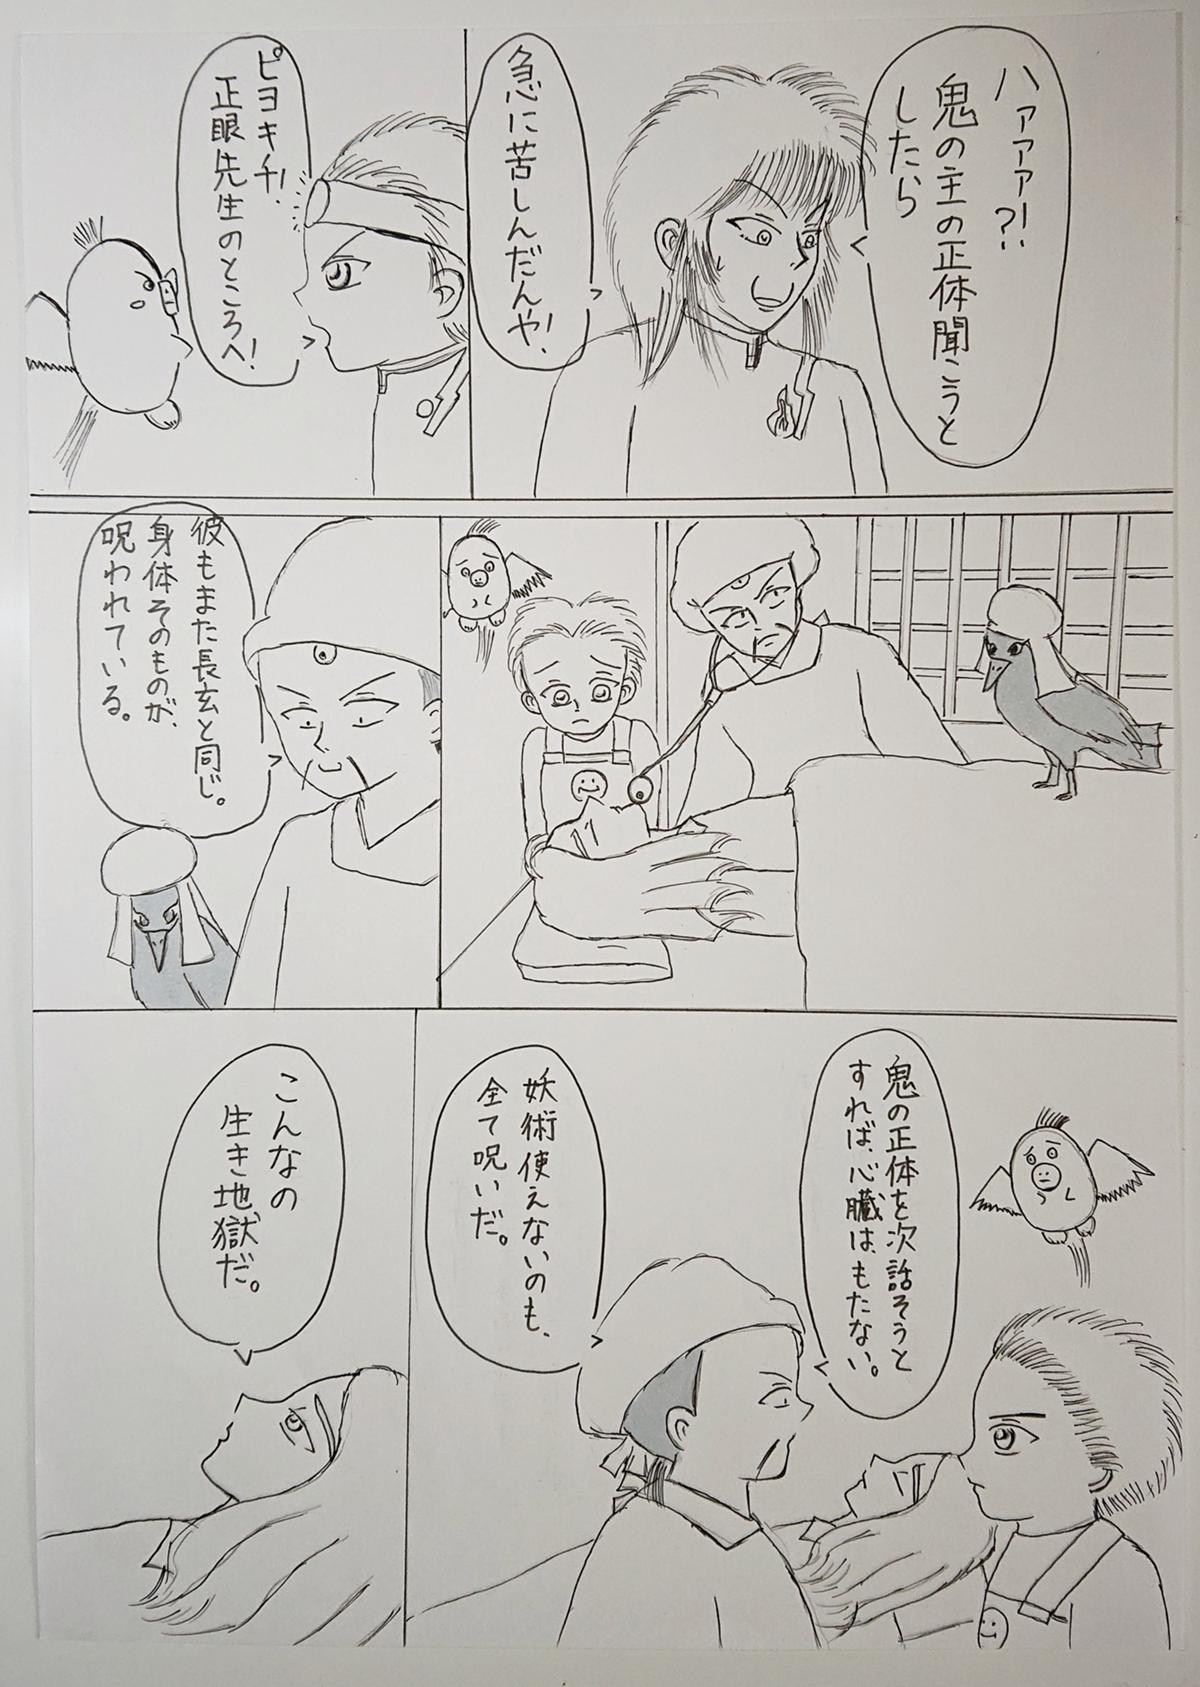 ハァァァ?!
鬼の主の正体聞こうと
したら
急に苦しんだんや!
ピヨキチ!
正眼先生のところへ!
彼もまた長玄と同じ。
身体そのものが、
呪われている。
鬼の正体を次話そうと
すれば、心臓は、もたない。
妖術使えないのも、
全て呪いだ。
こんなの
生き地獄だ。